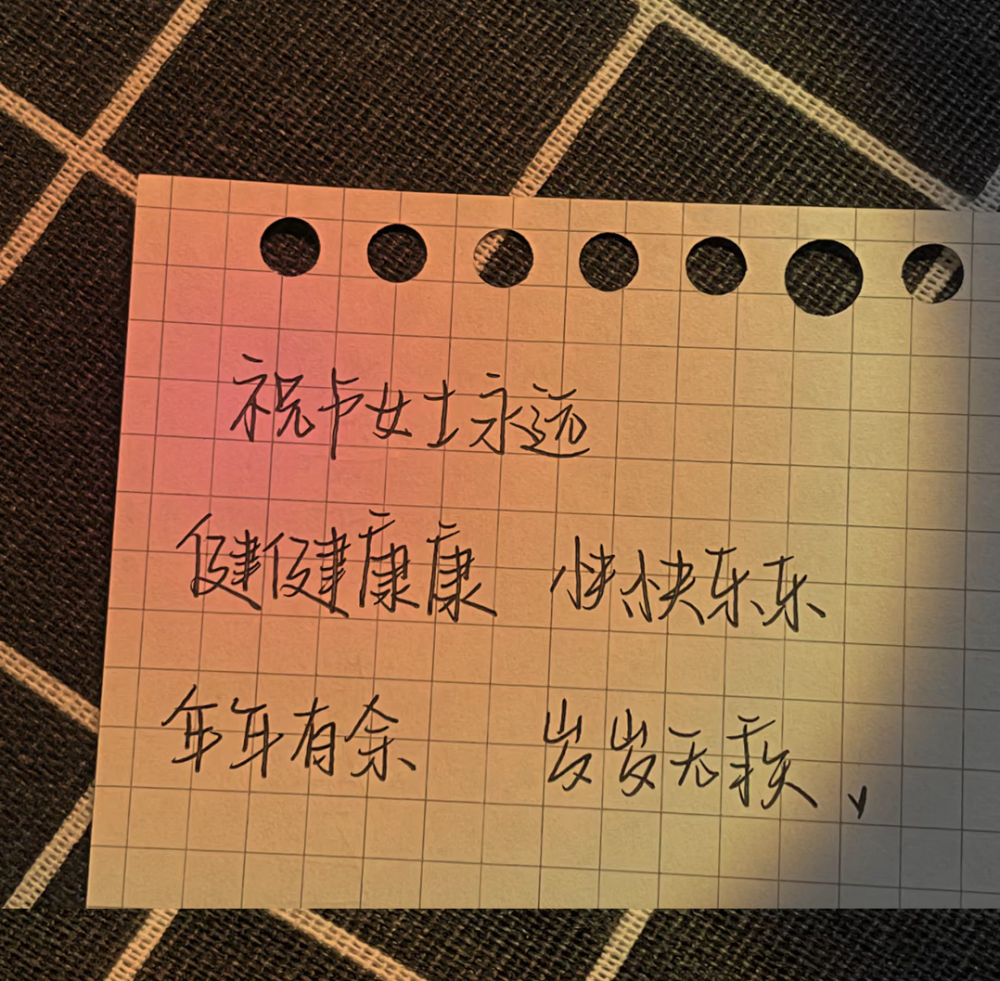 祝卢女士永远
健健康康 快快乐乐
年年有余 岁岁无